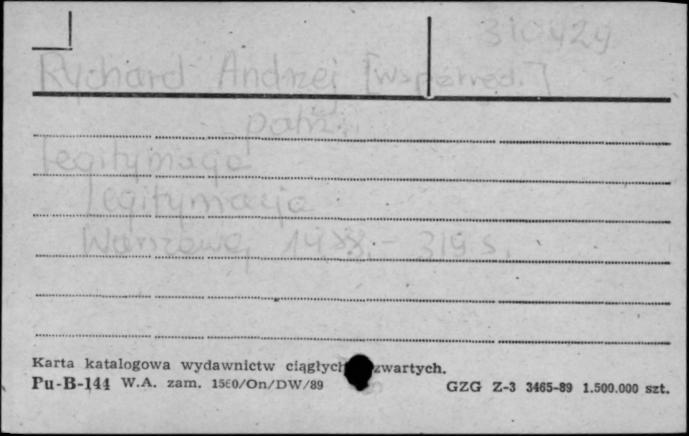 310424
Rychard Andrzej [współred.]
patrz:
Legitymacja
Legitymacja
Warszawa, 1988. - 319 s.
Karta katalogowa wydawnictw ciągłych zwartych.
Pu-B-144 W.A. zam. 1560/On/DW/89 GZG Z-3 3465-89 1.500.000 szt.